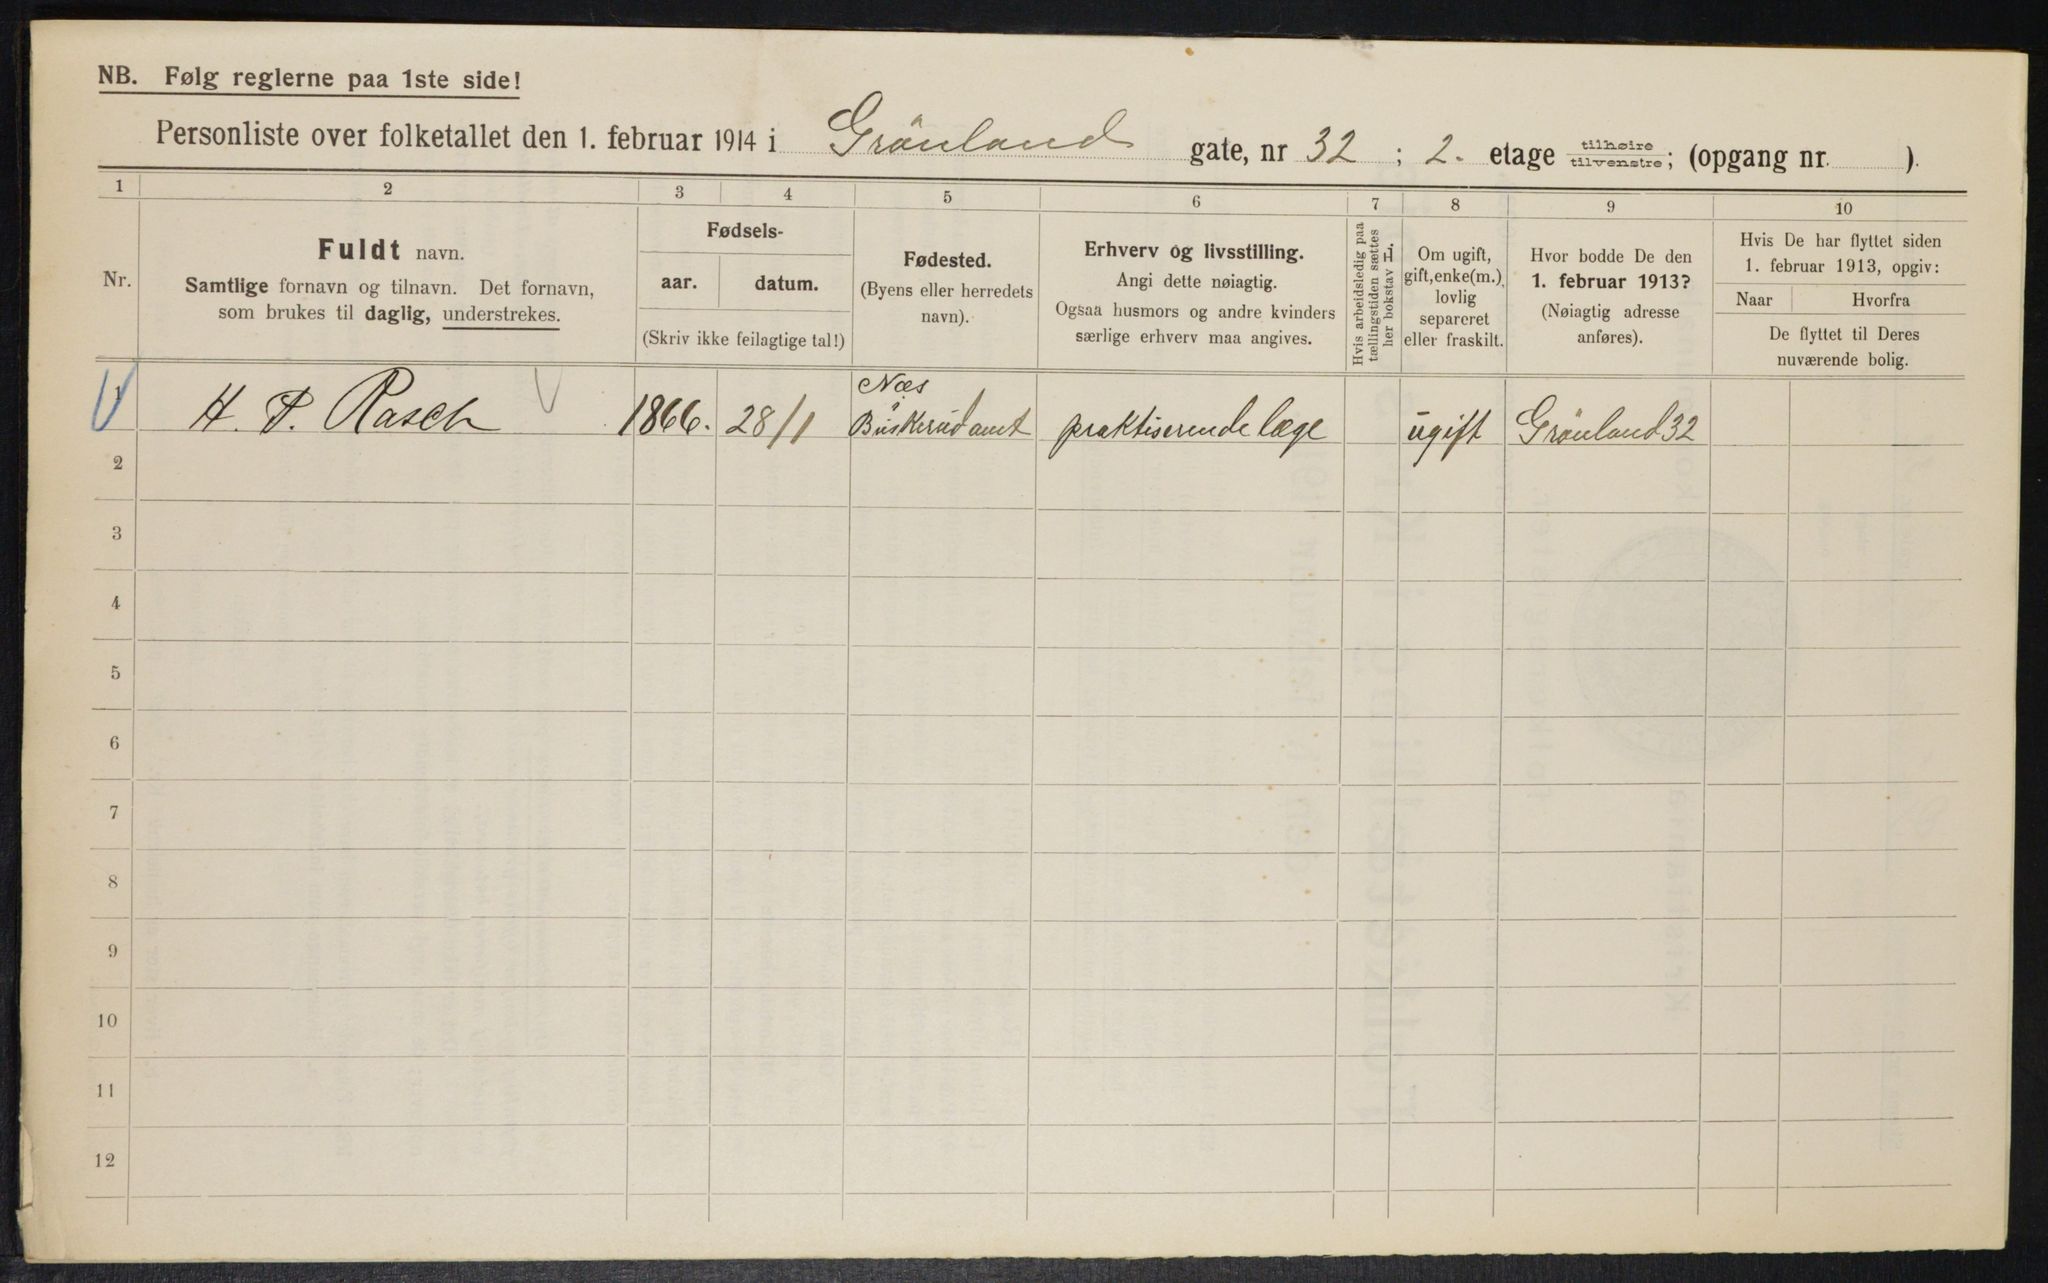 NB. Følg reglerne paa 1ste side!
Personliste over folketallet den 1. februar 1914 i Grönland gate, nr 32 ; 2. etage tilhøire tilvenstre; (opgang nr. ).
1 2 3 4 5 6 7 8 9 10
Nr.
Fuldt navn.
Samtlige fornavn og tilnavn. Det fornavn,
som brukes til daglig, understrekes.
Fødsels-
aar. datum.
(Skriv ikke feilagtige tal!)
Fødested.
(Byens eller herredets
navn).
Erhverv og livsstilling.
Angi dette nøiagtig.
Ogsaa husmors og andre kvinders
særlige erhverv maa angives.
Hvis arbeidsledig paa
tællingstiden sættes
her bokstav L.
Om ugift,
gift, enke(m.),
lovlig
separeret
eller fraskilt.
Hvor bodde De den
1. februar 1913?
(Nøiagtig adresse
anføres).
Hvis De har flyttet siden
1. februar 1913, opgiv:
Naar Hvorfra
De flyttet til Deres
nuværende bolig.
Næs
1 H. P. Rasch 1866. 28/1 Buskerud amt praktiserende læge ugift Grönland 32
2
3
4
5
6
7
8
9
10
11
12